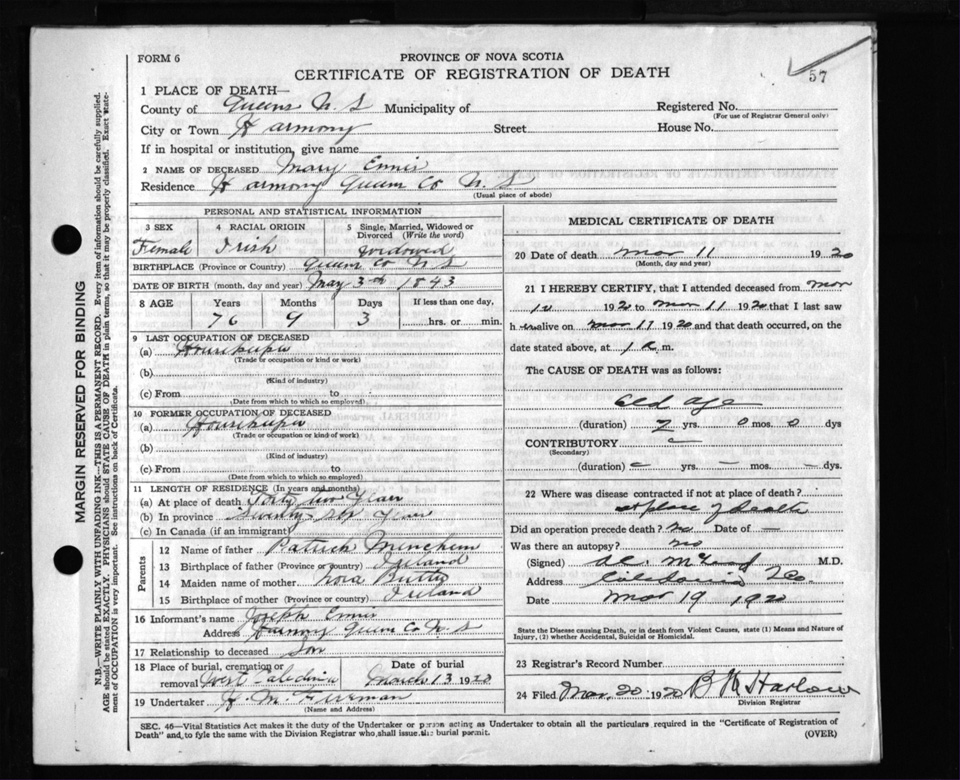 FORM 6
PROVINCE OF NOVA SCOTIA
CERTIFICATE OF REGISTRATION OF DEATH
57
1 PLACE OF DEATH—
County of Queens N. S Municipality of Registered No.
(For use of Registrar General only)
City or Town Harmony Street House No.
If in hospital or institution, give name
2 NAME OF DECEASED Mary Ennis
Residence Harmony Queens Co N. S
(Usual place of abode)
MARGIN RESERVED FOR BINDING
N.B.—WRITE PLAINLY WITH UNFADING INK—THIS IS A PERMANENT RECORD. Every item of information should be carefully supplied.
AGE should be stated EXACTLY. PHYSICIANS should STATE CAUSE OF DEATH in plain terms, so that it may be properly classified. Exact state-
ment of OCCUPATION is very important. See instructions on back of Certificate.
PERSONAL AND STATISTICAL INFORMATION
3 SEX 4 RACIAL ORIGIN 5 Single, Married, Widowed or
Divorced (Write the word)
Female Irish widowed
BIRTHPLACE (Province or Country) Queens Co N S
DATE OF BIRTH (month, day and year) May 3rd 1843
8 AGE Years Months Days If less than one day,
76 9 3 hrs. or min.
9 LAST OCCUPATION OF DECEASED
(a) Housekeeper
(Trade or occupation or kind or work)
(b)
(Kind of industry)
(c) From to
(Date from which to which so employed)
10 FORMER OCCUPATION OF DECEASED
(a) Housekeeper
(Trade or occupation or kind of work)
(b)
(Kind of industry)
(c) From to
(Date from which so which so employed)
11 LENGTH OF RESIDENCE (In years and months)
(a) At place of death Forty two Years
(b) In province Seventy six Years
(c) In Canada (if an immigrant)
Parents
12 Name of father Patrick
13 Birthplace of father (Province or country) Ireland
14 Maiden name of mother Nora Butler
15 Birthplace of mother (Province or country) Ireland
16 Informant's name Joseph Ennis
Address Harmony Queens Co N. S
17 Relationship to deceased Son
18 Place of burial, cremation or Date of burial
removal West Caledonia March 13 1920
19 Undertaker H M Freeman
(Name and Address)
MEDICAL CERTIFICATE OF DEATH
20 Date of death Mar 11 1920
(Month, day and year)
21 I HEREBY CERTIFY, that I attended deceased from Mar
10 1920 to Mar 11 1920 that I last saw
h alive on Mar 11 1920 and that death occurred, on the
date stated above, at 1 a.m.
The CAUSE OF DEATH was as follows:
Old age
(duration) 7 yrs. 0 mos. 0 dys
CONTRIBUTORY —
(Secondary)
(duration) — yrs. — mos. — dys.
22 Where was disease contracted if not at place of death?
at place of death
Did an operation precede death? no Date of —
Was there an autopsy? no
(Signed) M.D.
Address Caledonia Q Co
Date Mar 19 1920
State the Disease causing Death, or in death from Violent Causes, state (1) Means and Nature of
Injury, (2) whether Accidental, Suicidal or Homicidal.
23 Registrar's Record Number
24 Filed Mar. 20 1920 Harlow
Division Registrar
SEC. 46—Vital Statistics Act makes it the duty of the Undertaker or person acting as Undertaker to obtain all the particulars required in the "Certificate of Registration of
Death" and to fyle the same with the Division Registrar who shall issue the burial permit. (OVER)